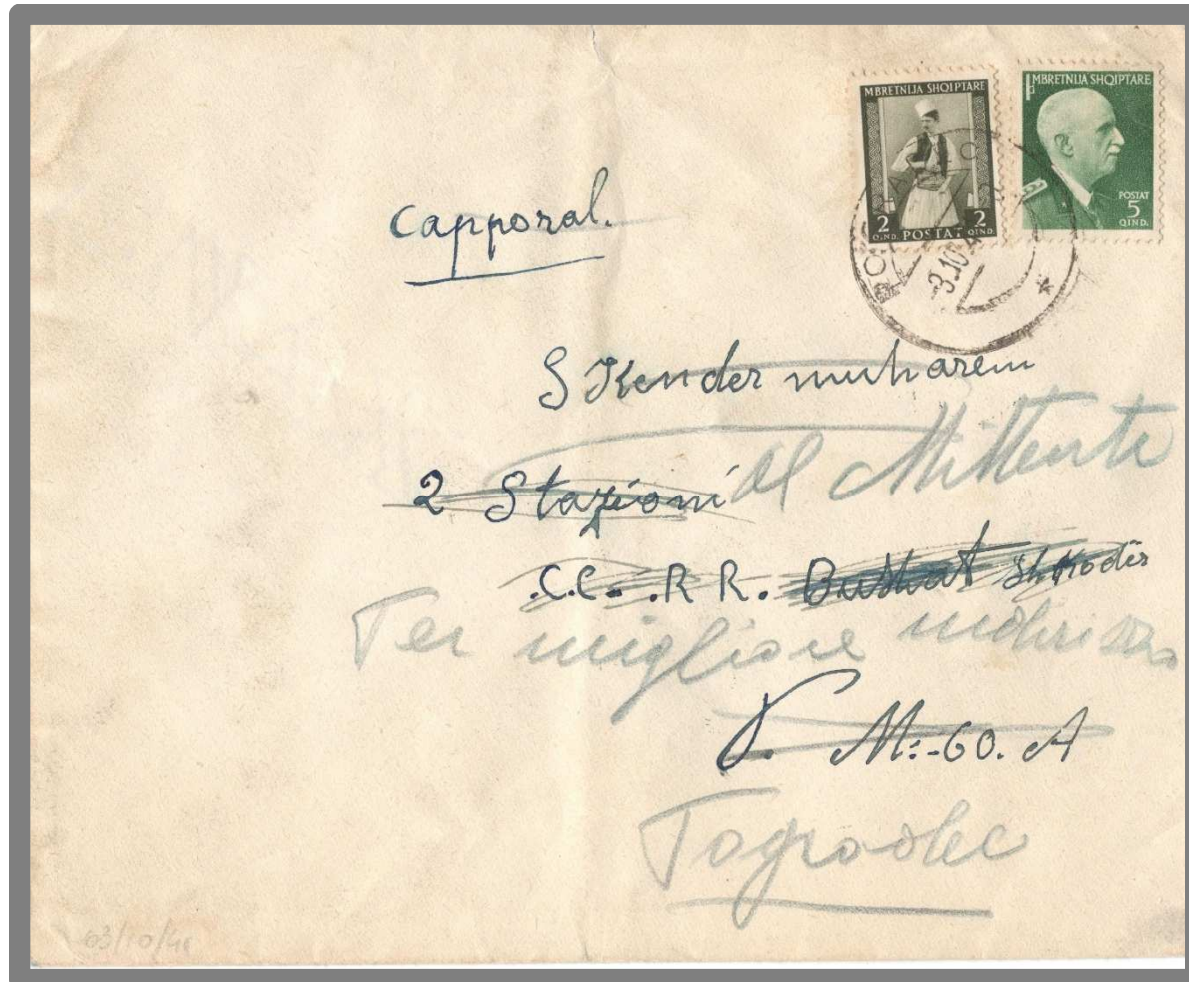 MBRETNIJA SHQIPTARE
2 QIND. POSTAT 2 QIND.
MBRETNIJA SHQIPTARE
POSTAT
5
QIND.
3.10.4
Capporal.
SKender muharem
2 Stazioni Al Mittente
C.C. R R. Bushat Shkodër
Per migliore indirizzo
P. M:-60. A
Pogradec
03/10/41